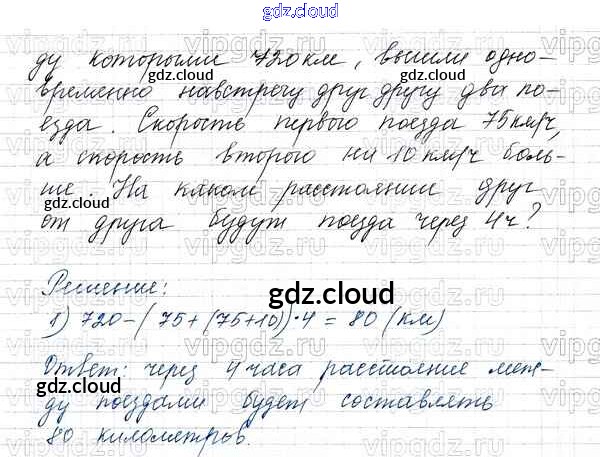 gdz.cloud
ду которыми 720 км, вышли одно-
временно навстречу друг другу два по-
езда. Скорость первого поезда 75 км/ч,
а скорость второго на 10 км/ч боль-
ше. На каком расстоянии друг
от друга будут поезда через 4 ч?
Решение:
1) 720-(75+(75+10))·4=80 (км)
Ответ: через 4 часа расстояние меж-
ду поездами будет составлять
80 километров.